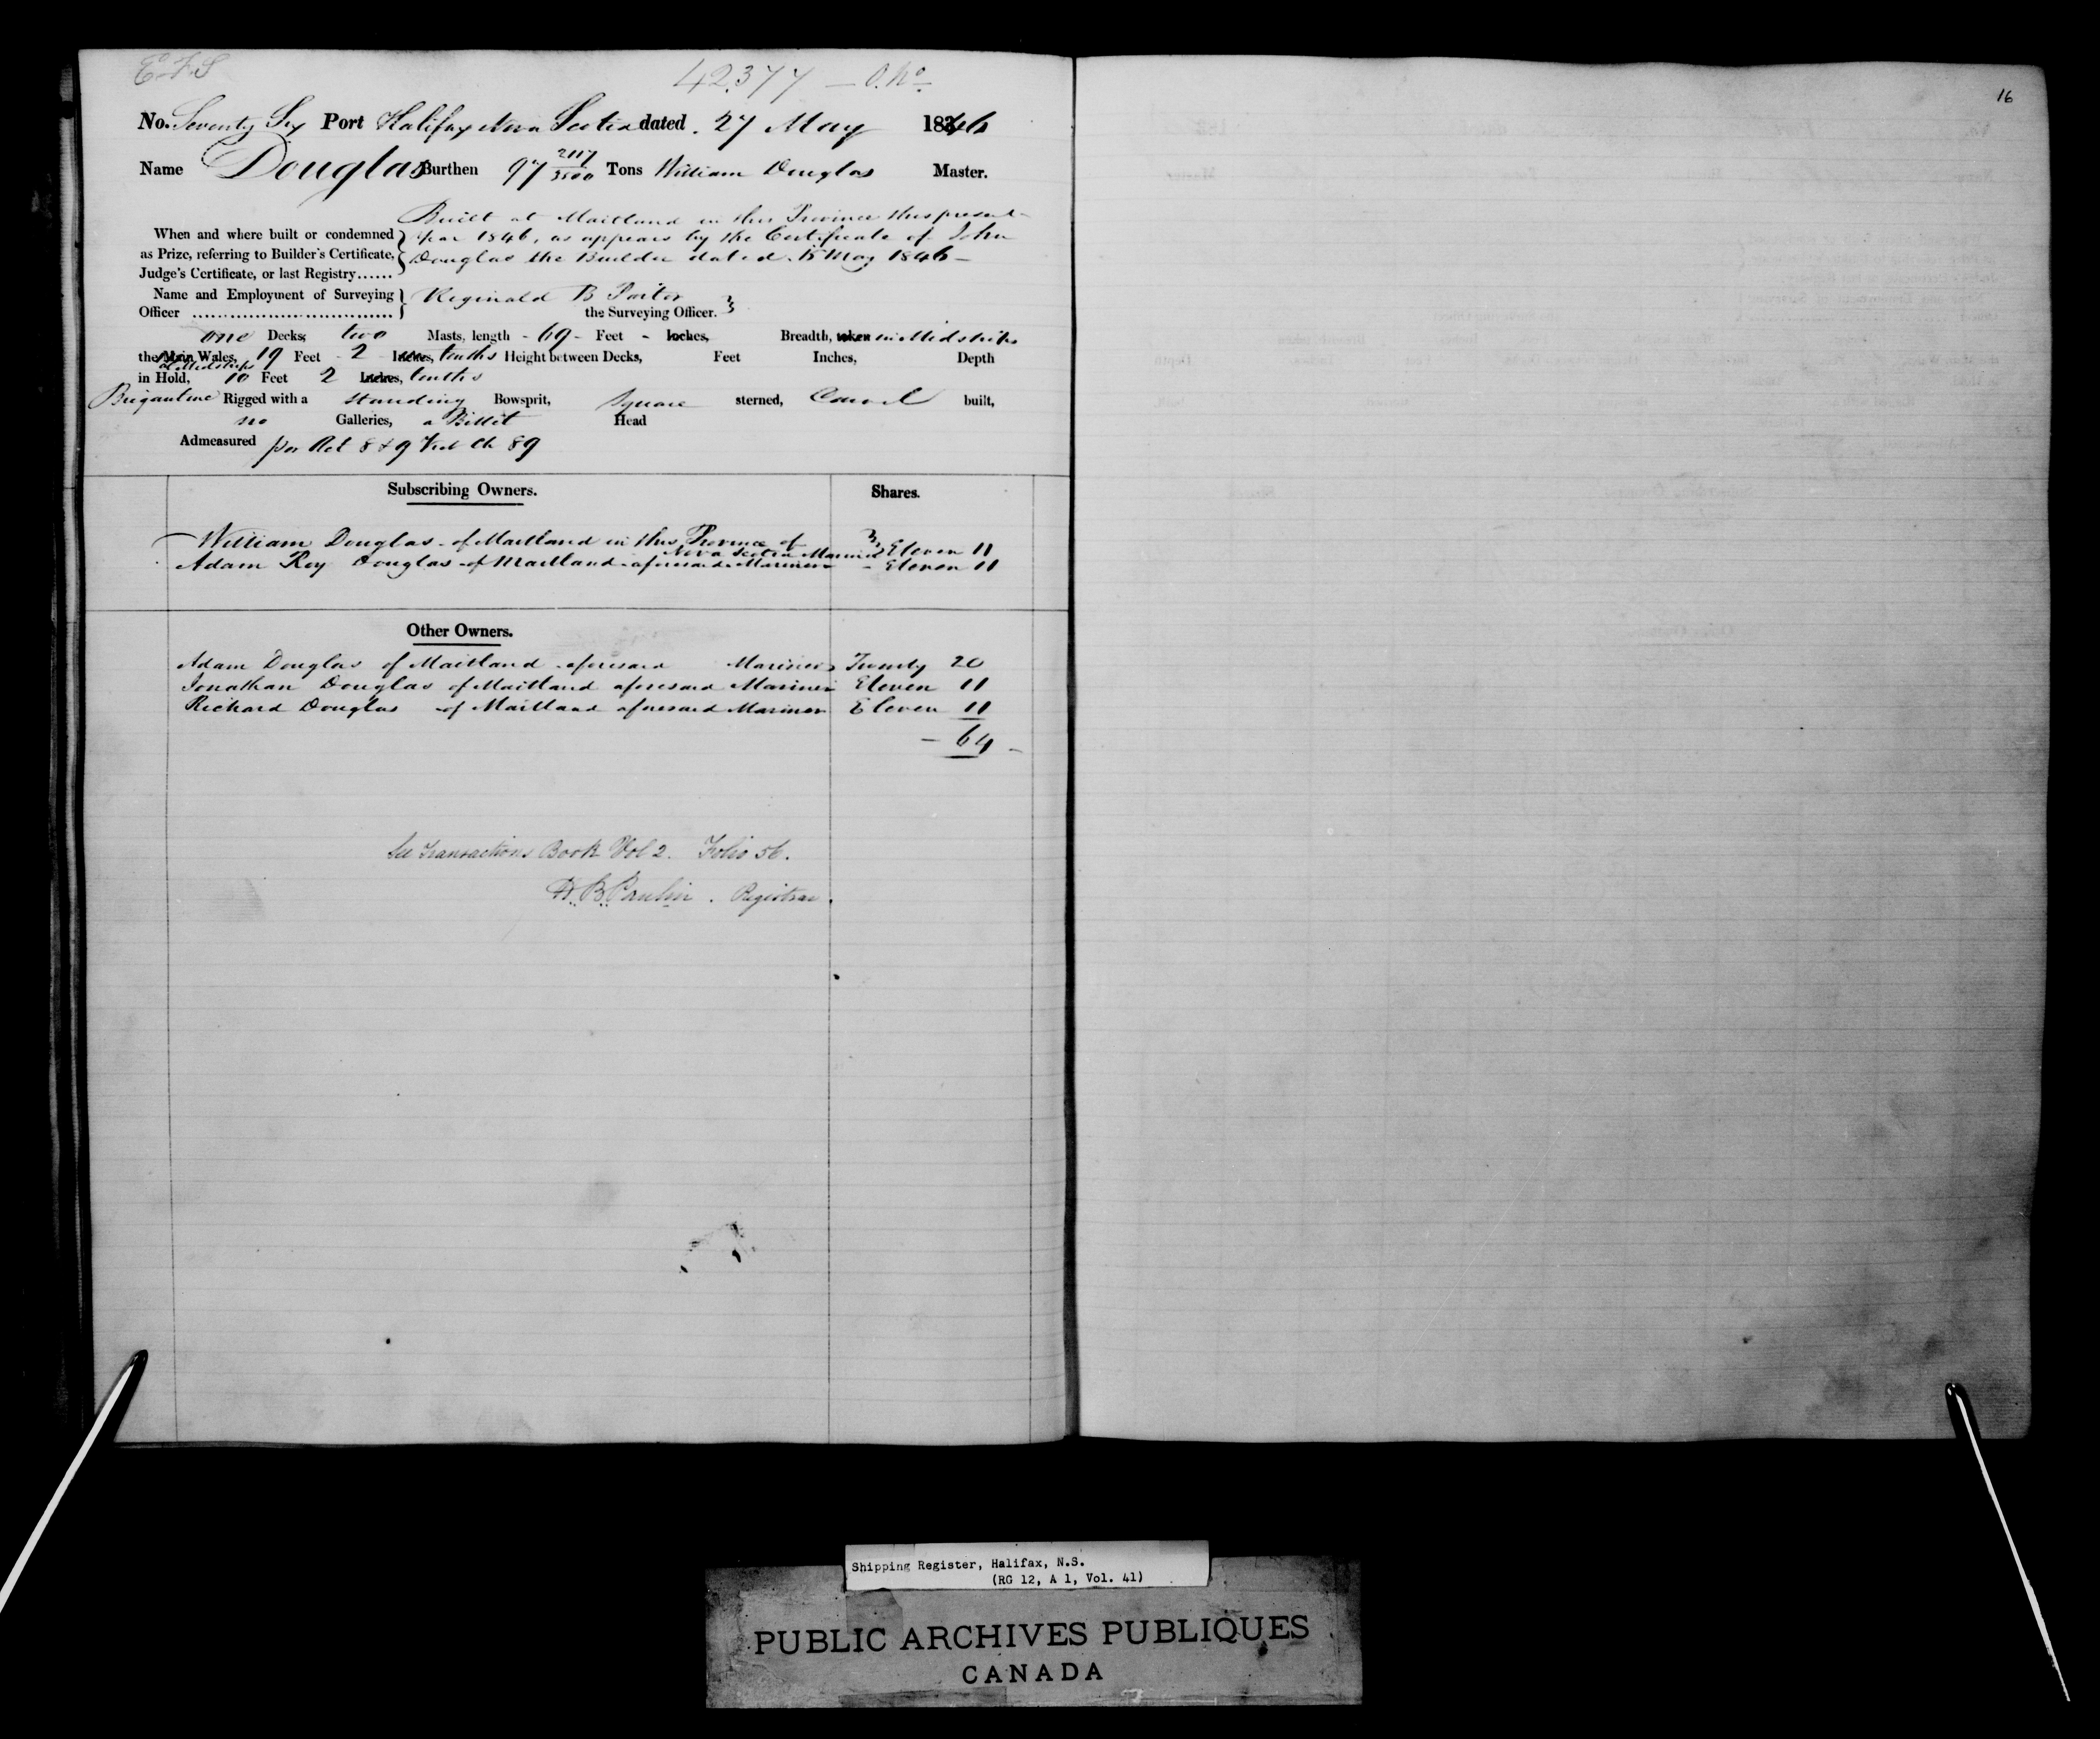 E.F.S
42.377 — O. No
16
No. Seventy Six Port Halifax Nova Scotia dated 27 May 1846
Name Douglas Burthen 97 2117/3500 Tons William Douglas Master.
Built at Maitland in this Province this present
When and where built or condemned year 1846, as appears by the Certificate of John
as Prize, referring to Builder's Certificate, Douglas the Builder dated 15 May 1846 —
Judge's Certificate, or last Registry......
Name and Employment of Surveying Reginald B Porter
Officer the Surveying Officer.
one Decks, two Masts, length - 69 - Feet - Inches, Breadth, taken in Midships
the Main Wales, 19 Feet - 2 Inches, tenths Height between Decks, Feet Inches, Depth
at Midships
in Hold, 10 Feet 2 Inches, tenths
Brigantine Rigged with a standing Bowsprit, Square sterned, Carvel built,
no Galleries, a Billet Head
Admeasured per Act 8 & 9 Vict Ch 89
Subscribing Owners. Shares.
William Douglas of Maitland in this Province of
Nova Scotia Mariner Eleven 11
Adam Roy Douglas of Maitland aforesaid Mariner - Eleven 11
Other Owners.
Adam Douglas of Maitland aforesaid Mariner Twenty 20
Jonathan Douglas of Maitland aforesaid Mariner Eleven 11
Richard Douglas of Maitland aforesaid Mariner Eleven 11
— 64 —
See Transactions Book Vol 2. Folio 56.
B. Registrar.
Shipping Register, Halifax, N.S.
(RG 12, A 1, Vol. 41)
PUBLIC ARCHIVES PUBLIQUES
CANADA